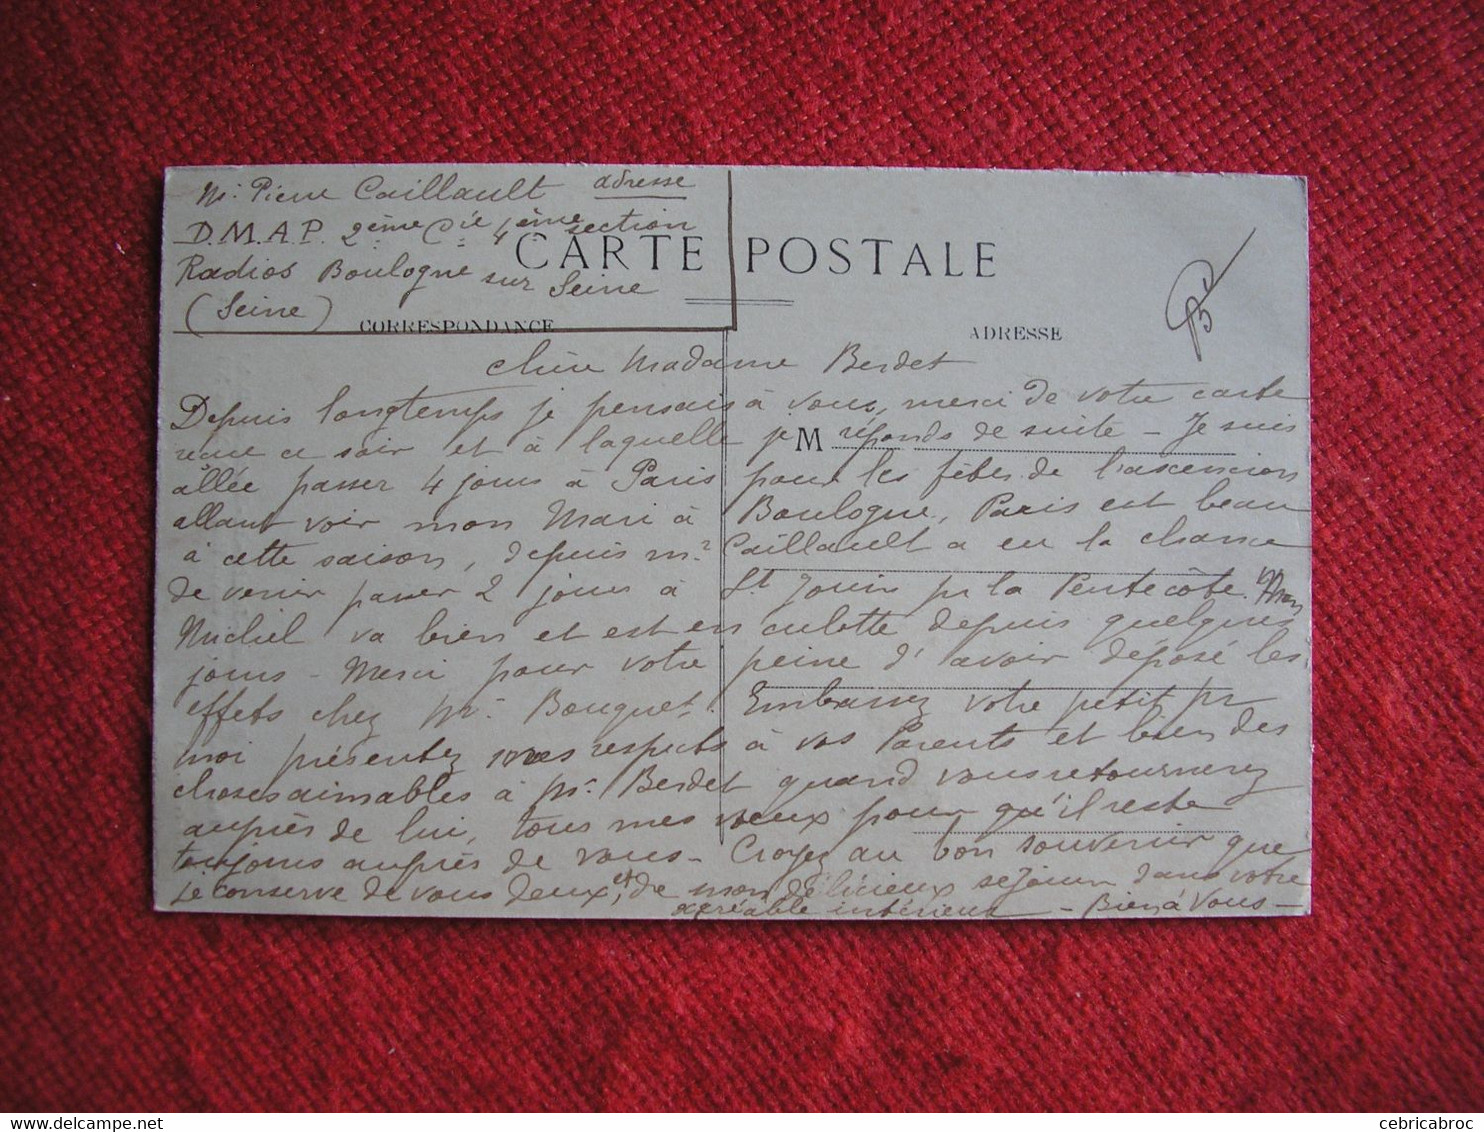 Mr Pierre Caillault adresse
D.M.A.P. 2ème Cie 4ème section
Radios Boulogne sur Seine
(Seine)
CARTE POSTALE
CORRESPONDANCE
ADRESSE
chère Madame Berdet
Depuis longtemps je pensais à vous, merci de votre carte
reçue ce soir et à laquelle je réponds de suite – Je suis
M
allée passer 4 jours à Paris pour les fêtes de l'ascencion
allant voir mon Mari à Boulogne, Paris est beau
à cette saison, depuis Mr Caillault a eu la chance
de venir passer 2 jours à St Jouin pr la Pentecôte. Mon
Michel va bien et est en culotte depuis quelques
jours – Merci pour votre peine d'avoir déposé les
effets chez Mr Bouquet. Embrassez votre petit pr
moi présentez mes respects à vos Parents et bien des
choses aimables à Mr Berdet quand vous retournerez
auprès de lui, tous mes vœux pour qu'il reste
toujours auprès de vous – Croyez au bon souvenir que
je conserve de vous deux, et de mon délicieux séjour dans votre
agréable intérieur – Bien à Vous –
cebricabroc